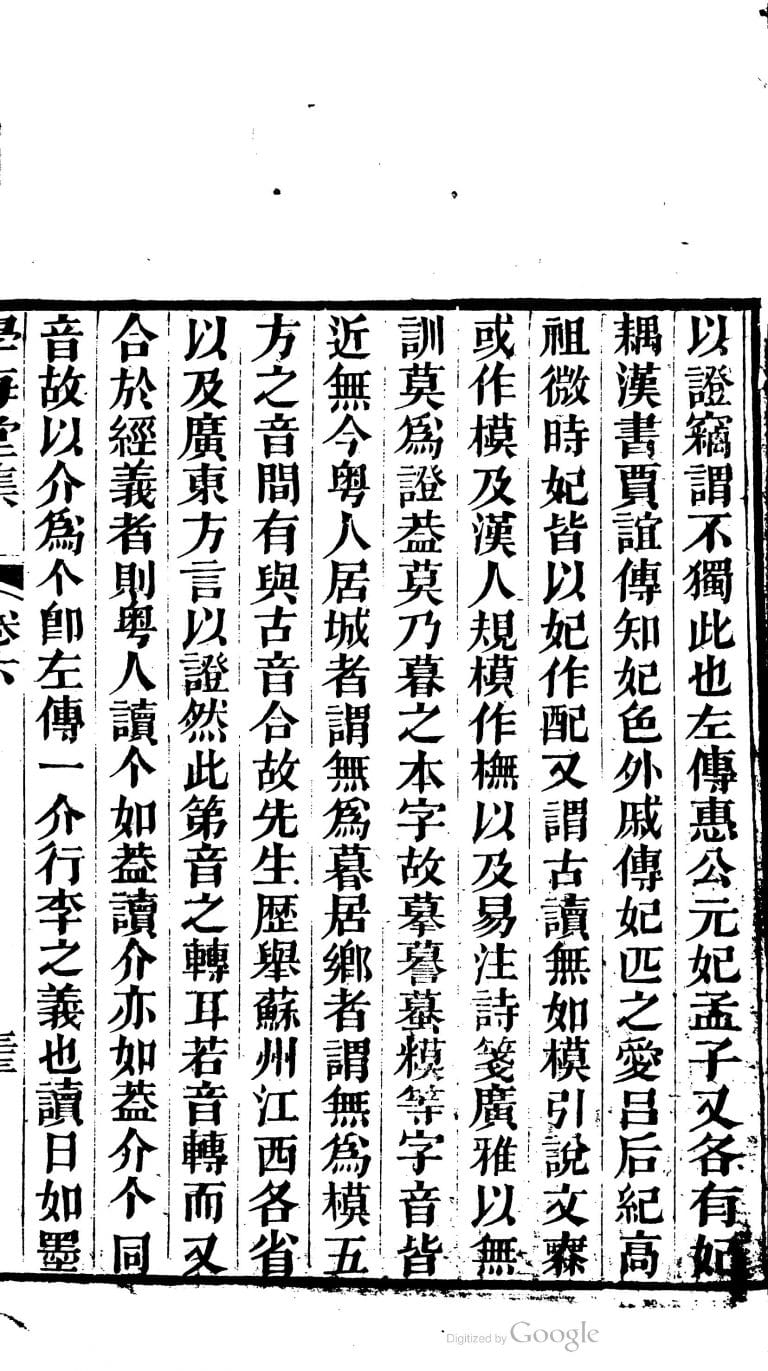 以證竊謂不獨此也左傳惠公元妃孟子又各有妃
耦漢書賈誼傳知妃色外戚傳妃匹之愛吕后紀高
祖微時妃皆以妃作配又謂古讀無如模引說文橆
或作模及漢人規模作橅以及易注詩箋廣雅以無
訓莫爲證葢莫乃暮之本字故摹謩蟇糢等字音皆
近無今粤人居城者謂無爲暮居鄉者謂無爲模五
方之音間有與古音合故先生歷舉蘇州江西各省
以及廣東方言以證然此第音之轉耳若音轉而又
合於經義者則粤人讀个如葢讀介亦如葢介个同
音故以介爲个卽左傳一介行李之義也讀日如墨
學海堂集
卷六
Digitized by Google